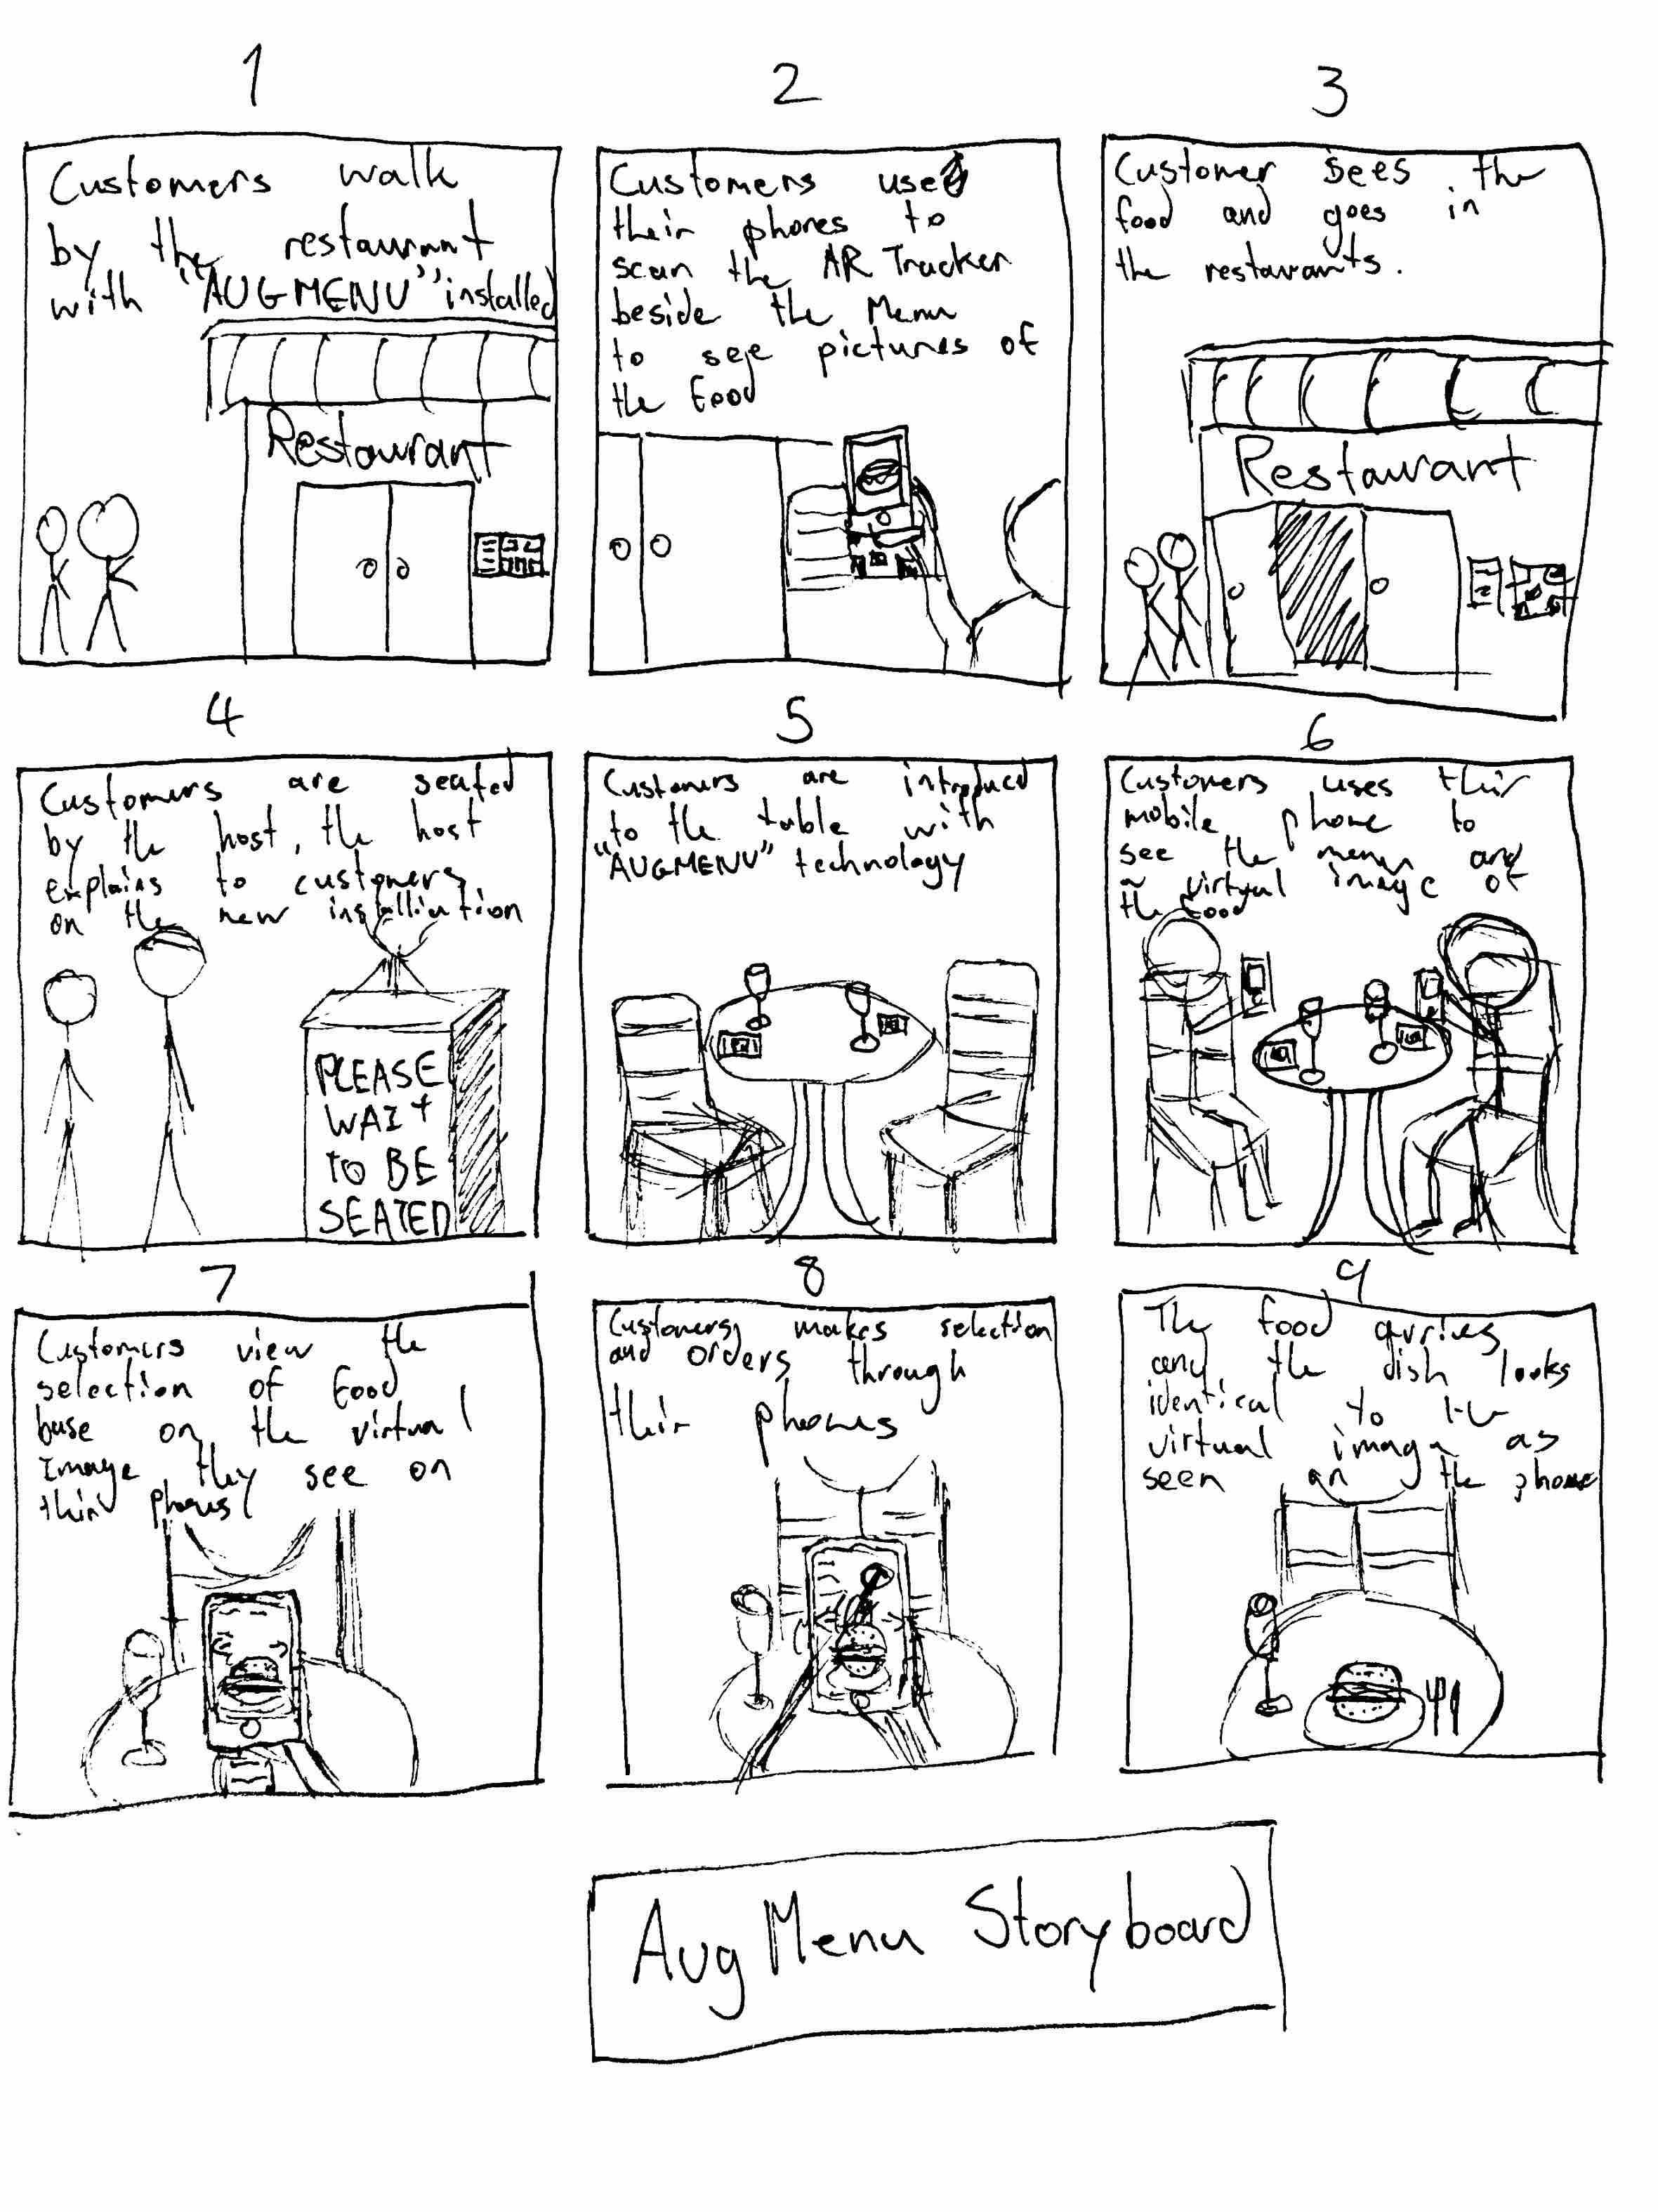 1
Customers walk
by the restaurant
with "AUGMENU" installed
Restaurant
2
Customers use
their phones to
scan the AR Tracker
beside the Menu
to see pictures of
the food
3
Customer sees the
food and goes in
the restaurants.
Restaurant
4
Customers are seated
by the host, the host
explains to customers
on the new installation
PLEASE
WAIT
TO BE
SEATED
5
Customers are introduced
to the table with
"AUGMENU" technology
6
Customers uses their
mobile phone to
see the menu and
a virtual image of
the food
7
Customers view the
selection of food
base on the virtual
Image they see on
their phones
8
Customers makes selection
and orders through
their phones
9
The food arrives
and the dish looks
identical to the
virtual image as
seen on the phone
Aug Menu Storyboard